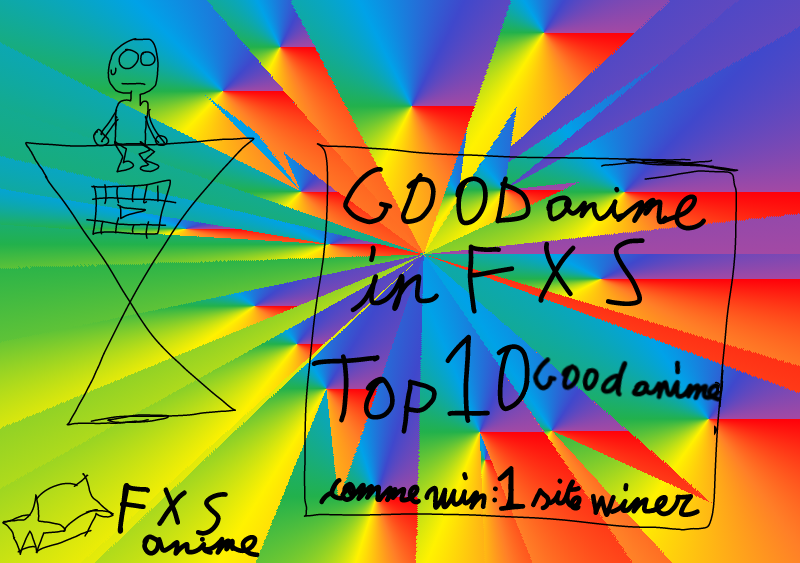 GOOD anime
in FXS
Top 10 Good anime
comme win: 1 site winer
FXS
anime